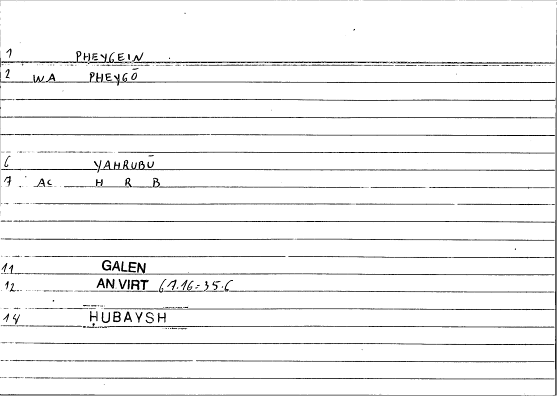 1 PHEYGEIN
2 WA PHEYGŌ
6 YAHRUBŪ
7 AC H R B
11 GALEN
12 AN VIRT 67.16=35.6
14 ḤUBAYSH